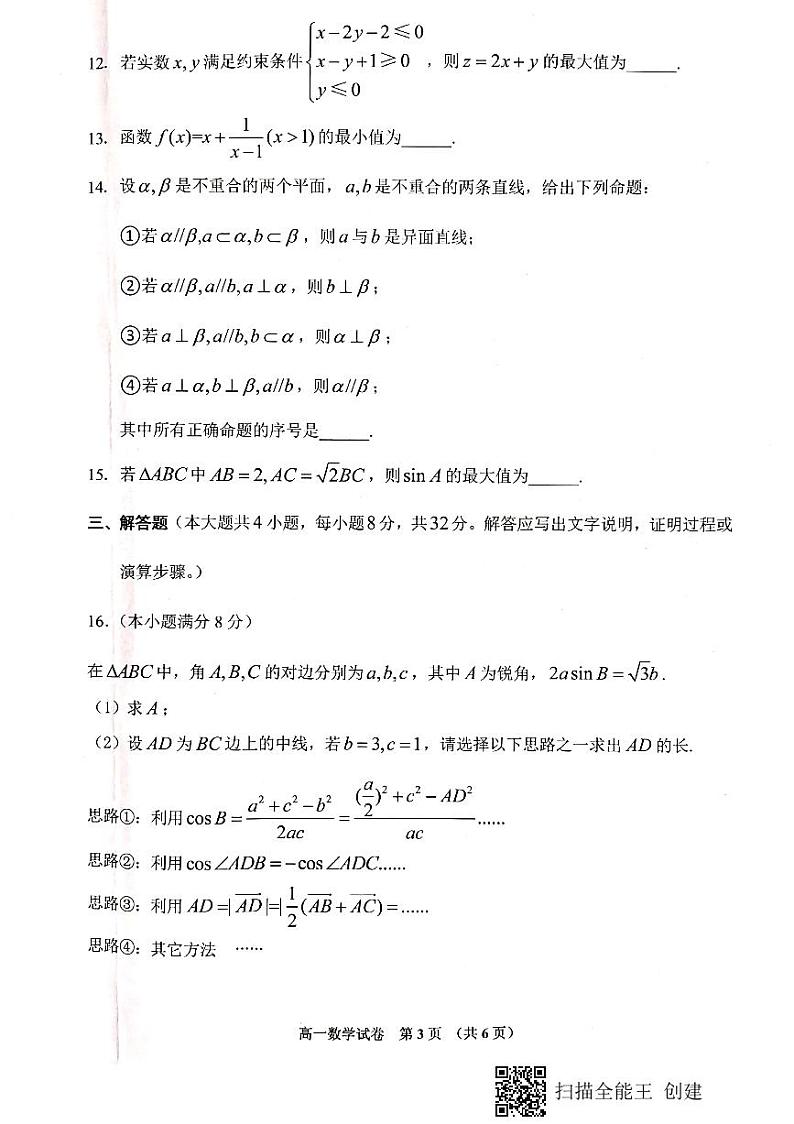 12. 若实数 x, y 满足约束条件 { x−2y−2≤0
x−y+1≥0 ，则 z = 2x+y 的最大值为______.
y≤0
13. 函数 f(x)=x+ 1/(x−1) (x>1) 的最小值为______.
14. 设 α,β 是不重合的两个平面，a,b 是不重合的两条直线，给出下列命题：
①若 α//β,a⊂α,b⊂β，则 a 与 b 是异面直线；
②若 α//β,a//b,a⊥α，则 b⊥β；
③若 a⊥β,a//b,b⊂α，则 α⊥β；
④若 a⊥α,b⊥β,a//b，则 α//β；
其中所有正确命题的序号是______.
15. 若 ΔABC 中 AB=2, AC=√2BC，则 sin A 的最大值为______.
三、解答题（本大题共 4 小题，每小题 8 分，共 32 分。解答应写出文字说明，证明过程或
演算步骤。）
16.（本小题满分 8 分）
在 ΔABC 中，角 A,B,C 的对边分别为 a,b,c，其中 A 为锐角，2a sin B=√3b.
（1）求 A；
（2）设 AD 为 BC 边上的中线，若 b=3,c=1，请选择以下思路之一求出 AD 的长.
思路①：利用 cos B = (a²+c²−b²)/2ac = ((a/2)²+c²−AD²)/ac ......
思路②：利用 cos∠ADB=−cos∠ADC......
思路③：利用 AD=|AD|=|1/2(AB+AC)=......
思路④：其它方法 ······
高一数学试卷 第 3 页 （共 6 页）
扫描全能王 创建